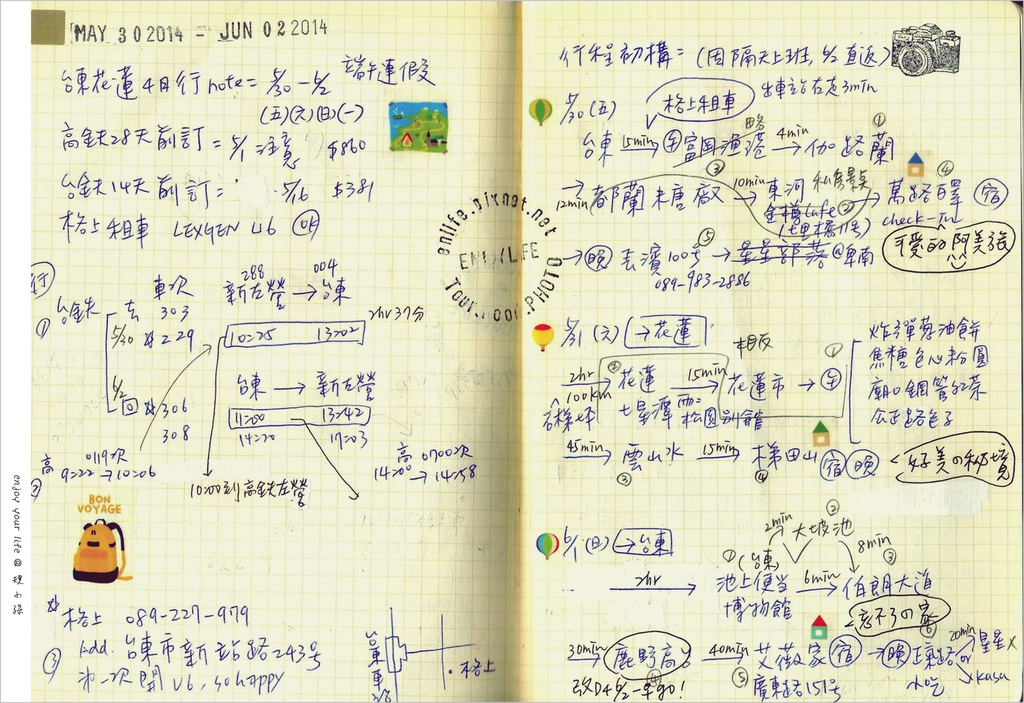 MAY 30 2014 - JUN 02 2014
台東花蓮4日行note= 5/30 - 6/2 端午連假
(五)(六)(日)(一)
高鐵28天前訂= 5/1 注意 $860
台鐵14天前訂= 5/16 $381
格上租車 LEXGEN U6 OK
行
車次 新左營 → 台東
288 004
① 台鐵 去 303
5/30 229 10=25 13=02 2hr37分
台東 → 新左營
6/2 回 306 11=00 13=42
308 14=20 17=03
高 0119次
9=22 → 10=06
高 0700次
14=20 → 14=58
10=00到高鐵左營
BON VOYAGE
格上 089-227-979
③ Add. 台東市新站路243號
第一次開U6, so happy
台東車站
格上
enjoy your life @
enlife.pixnet.net
ENJOY LIFE
Tour...Food...PHOTO
行程初構= (因隔天上班, 6/2 直返)
5/30 (五) 格上租車 出車站右走3min
台東 15min → 午 富岡漁港 略 4min → 伽路蘭 ①
→ 12min 都蘭糖廠 ③ 10min → 東河 私房景點 → 萬路驛 宿 ④
金樽Cafe ②
(七里橋11號)
check-in
可愛的阿美族
→ 晚 去濱100号 ⑤ → 星星部落 @卑南
089-983-2886
5/31 (六) → 花蓮
相反
2hr 100km → 花蓮 ② 15min → 花蓮市 → 午 ①
七星潭 松園別館
炸彈蔥油餅
焦糖包心粉圓
廟口鋼管紅茶
公正路包子
45min → 雲山水 ③ 15min → 梯田山 ④ 宿 晚 <好美の秘境
6/1 (日) → 台東
2min 大坡池 ② 8min
2hr → ① (台東) 池上便當博物館 6min → 伯朗大道 ③
<忘不了の家
30min → 鹿野高台 ④ 40min → 艾薇家 宿 → 晚 正東路 or 20min 星星
改D4 6/2一早go!
⑤ 廣東路151号
小吃